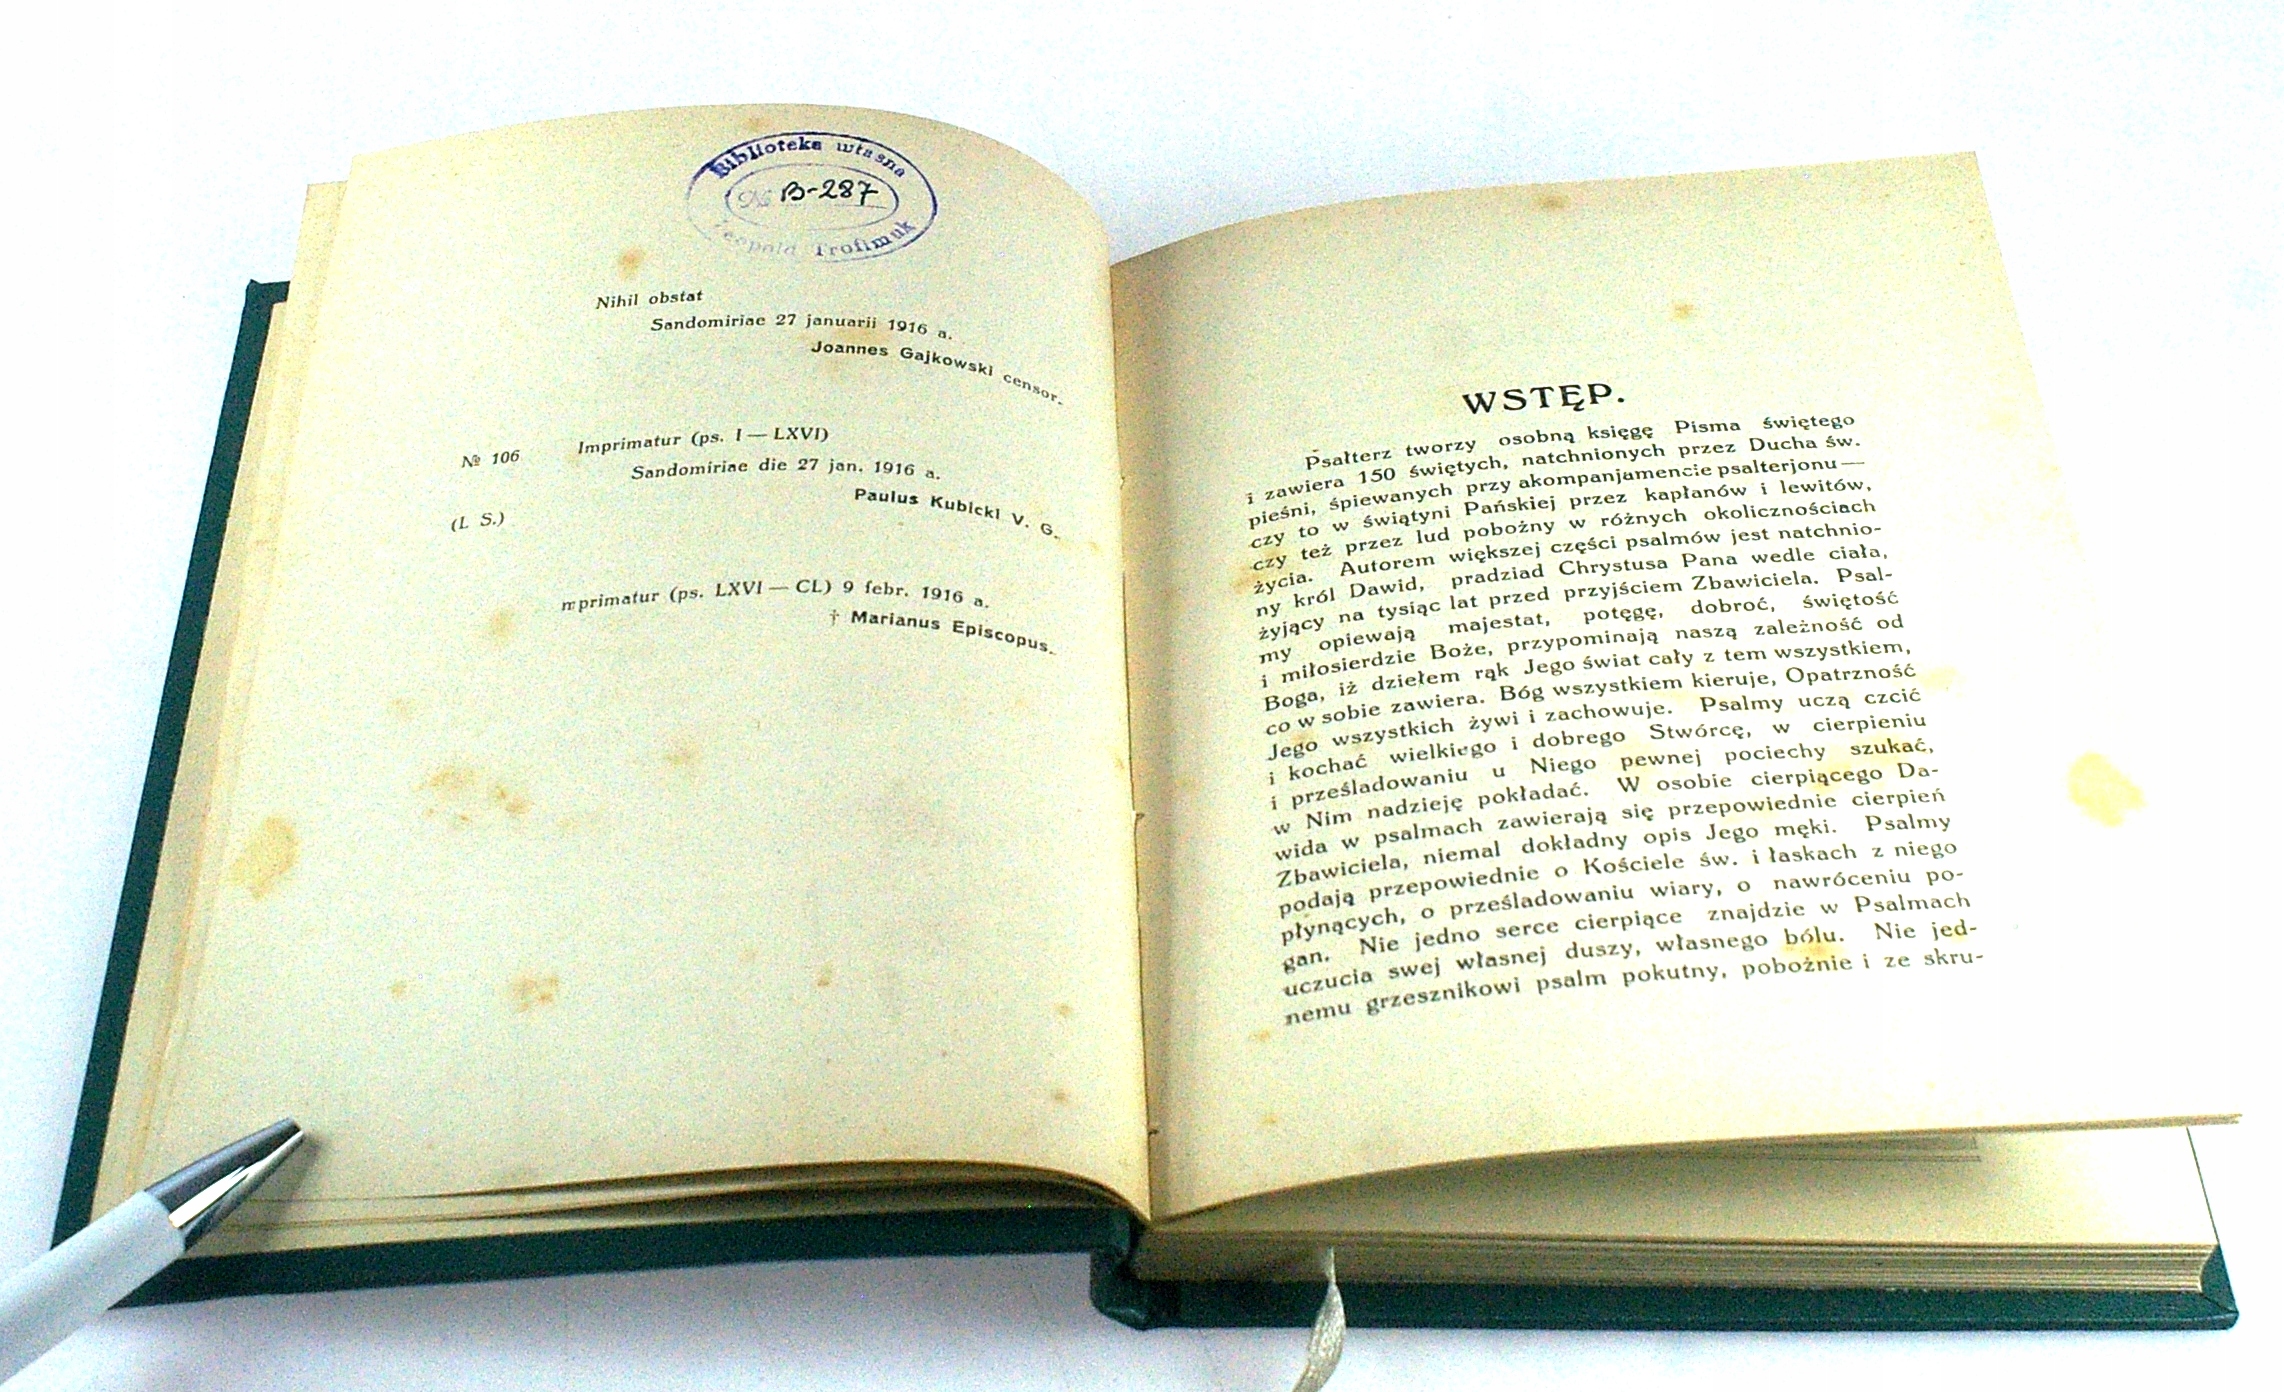 Biblioteka własna
№ B-287
Leopold Trofimuk
Nihil obstat
Sandomiriae 27 januarii 1916 a.
Joannes Gajkowski censor.
№ 106 Imprimatur (ps. I — LXVI)
Sandomiriae die 27 jan. 1916 a.
Paulus Kubicki V. G.
(L S.)
mprimatur (ps. LXVI — CL) 9 febr. 1916 a.
† Marianus Episcopus.
WSTĘP.
Psałterz tworzy osobną księgę Pisma świętego
i zawiera 150 świętych, natchnionych przez Ducha św.
pieśni, śpiewanych przy akompanjamencie psalterjonu —
czy to w świątyni Pańskiej przez kapłanów i lewitów,
czy też przez lud pobożny w różnych okolicznościach
życia. Autorem większej części psalmów jest natchnio-
ny król Dawid, pradziad Chrystusa Pana wedle ciała,
żyjący na tysiąc lat przed przyjściem Zbawiciela. Psal-
my opiewają majestat, potęgę, dobroć, świętość
i miłosierdzie Boże, przypominają naszą zależność od
Boga, iż dziełem rąk Jego świat cały z tem wszystkiem,
co w sobie zawiera. Bóg wszystkiem kieruje, Opatrzność
Jego wszystkich żywi i zachowuje. Psalmy uczą czcić
i kochać wielkiego i dobrego Stwórcę, w cierpieniu
i prześladowaniu u Niego pewnej pociechy szukać,
w Nim nadzieję pokładać. W osobie cierpiącego Da-
wida w psalmach zawierają się przepowiednie cierpień
Zbawiciela, niemal dokładny opis Jego męki. Psalmy
podają przepowiednie o Kościele św. i łaskach z niego
płynących, o prześladowaniu wiary, o nawróceniu po-
gan. Nie jedno serce cierpiące znajdzie w Psalmach
uczucia swej własnej duszy, własnego bólu. Nie jed-
nemu grzesznikowi psalm pokutny, pobożnie i ze skru-